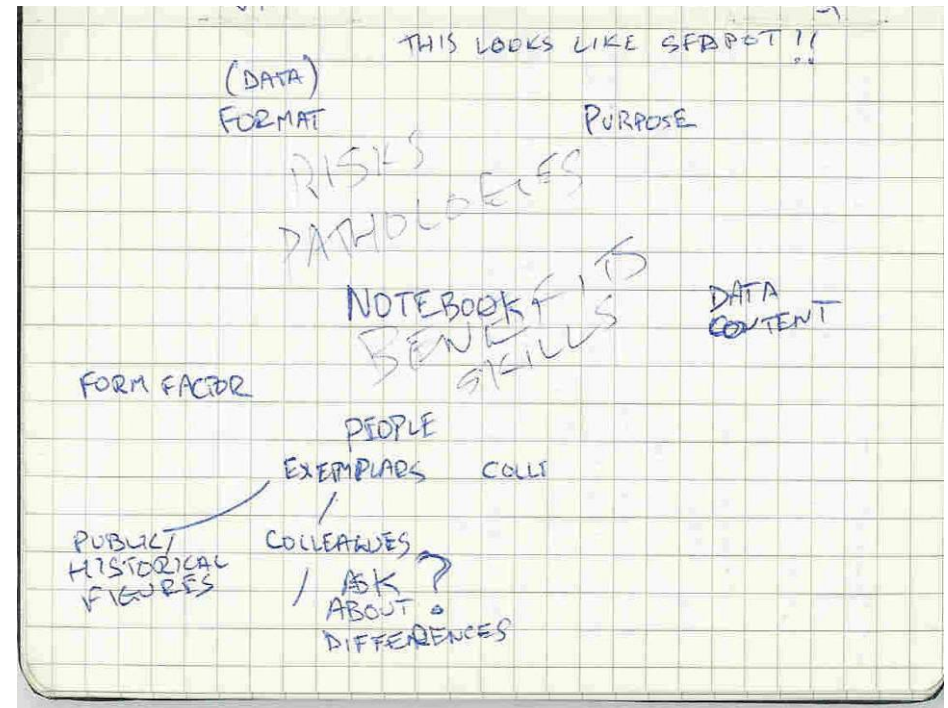 THIS LOOKS LIKE SFDPOT!!
(DATA)
FORMAT
PURPOSE
RISKS
PATHOLOGIES
NOTEBOOK
BENEFITS
SKILLS
DATA
CONTENT
FORM FACTOR
PEOPLE
EXEMPLARS COLLE
PUBLIC/
HISTORICAL
FIGURES
COLLEAGUES
ASK ?
ABOUT
DIFFERENCES